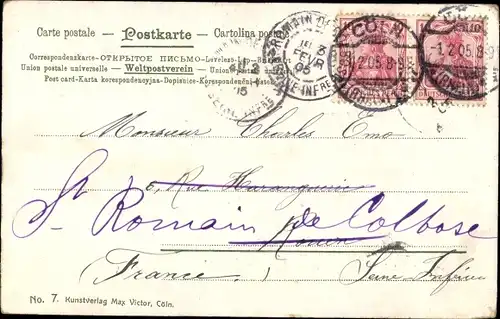 Carte postale — Postkarte — Cartolina postale
Correspondenzkarte-ОТКРЫТОЕ ПИСЬМО-Levelezö-Lap-Briefkaart
Union postale universelle — Weltpostverein — Union postale universelle
Post card-Karta korespondencyjna-Dopisnice-Korespondenční lístek
CÖLN
1.2.05.8-9
CÖLN
-1.2.05.8-9
ROMAIN DE
3
FEVR
05
INFRE
Monsieur Charles Emo
6, Rue Haranguerie
St Romain de Colbosc
Rouen
(France) Seine Inférieure
No. 7. Kunstverlag Max Victor, Cöln.